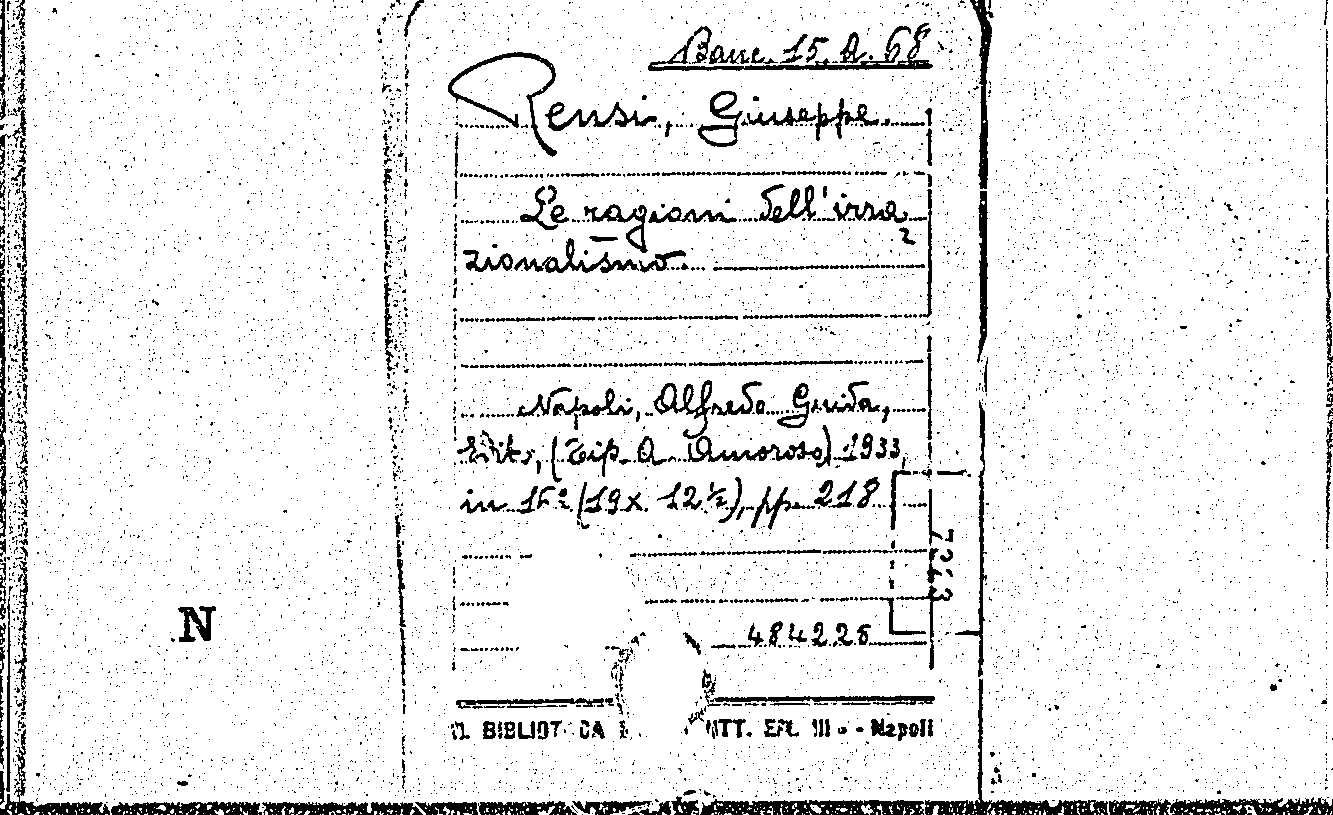 Banc. 15. A. 68
Rensi, Giuseppe.
Le ragioni dell'irra
zionalismo.
Napoli, Alfredo Guida,
Edit., (Tip. A. Amoroso) 1933,
in 16º (19 x 12 ½), pp. 218
7263
N
484226
BIBLIOT CA
ITT. EM. III - Napoli